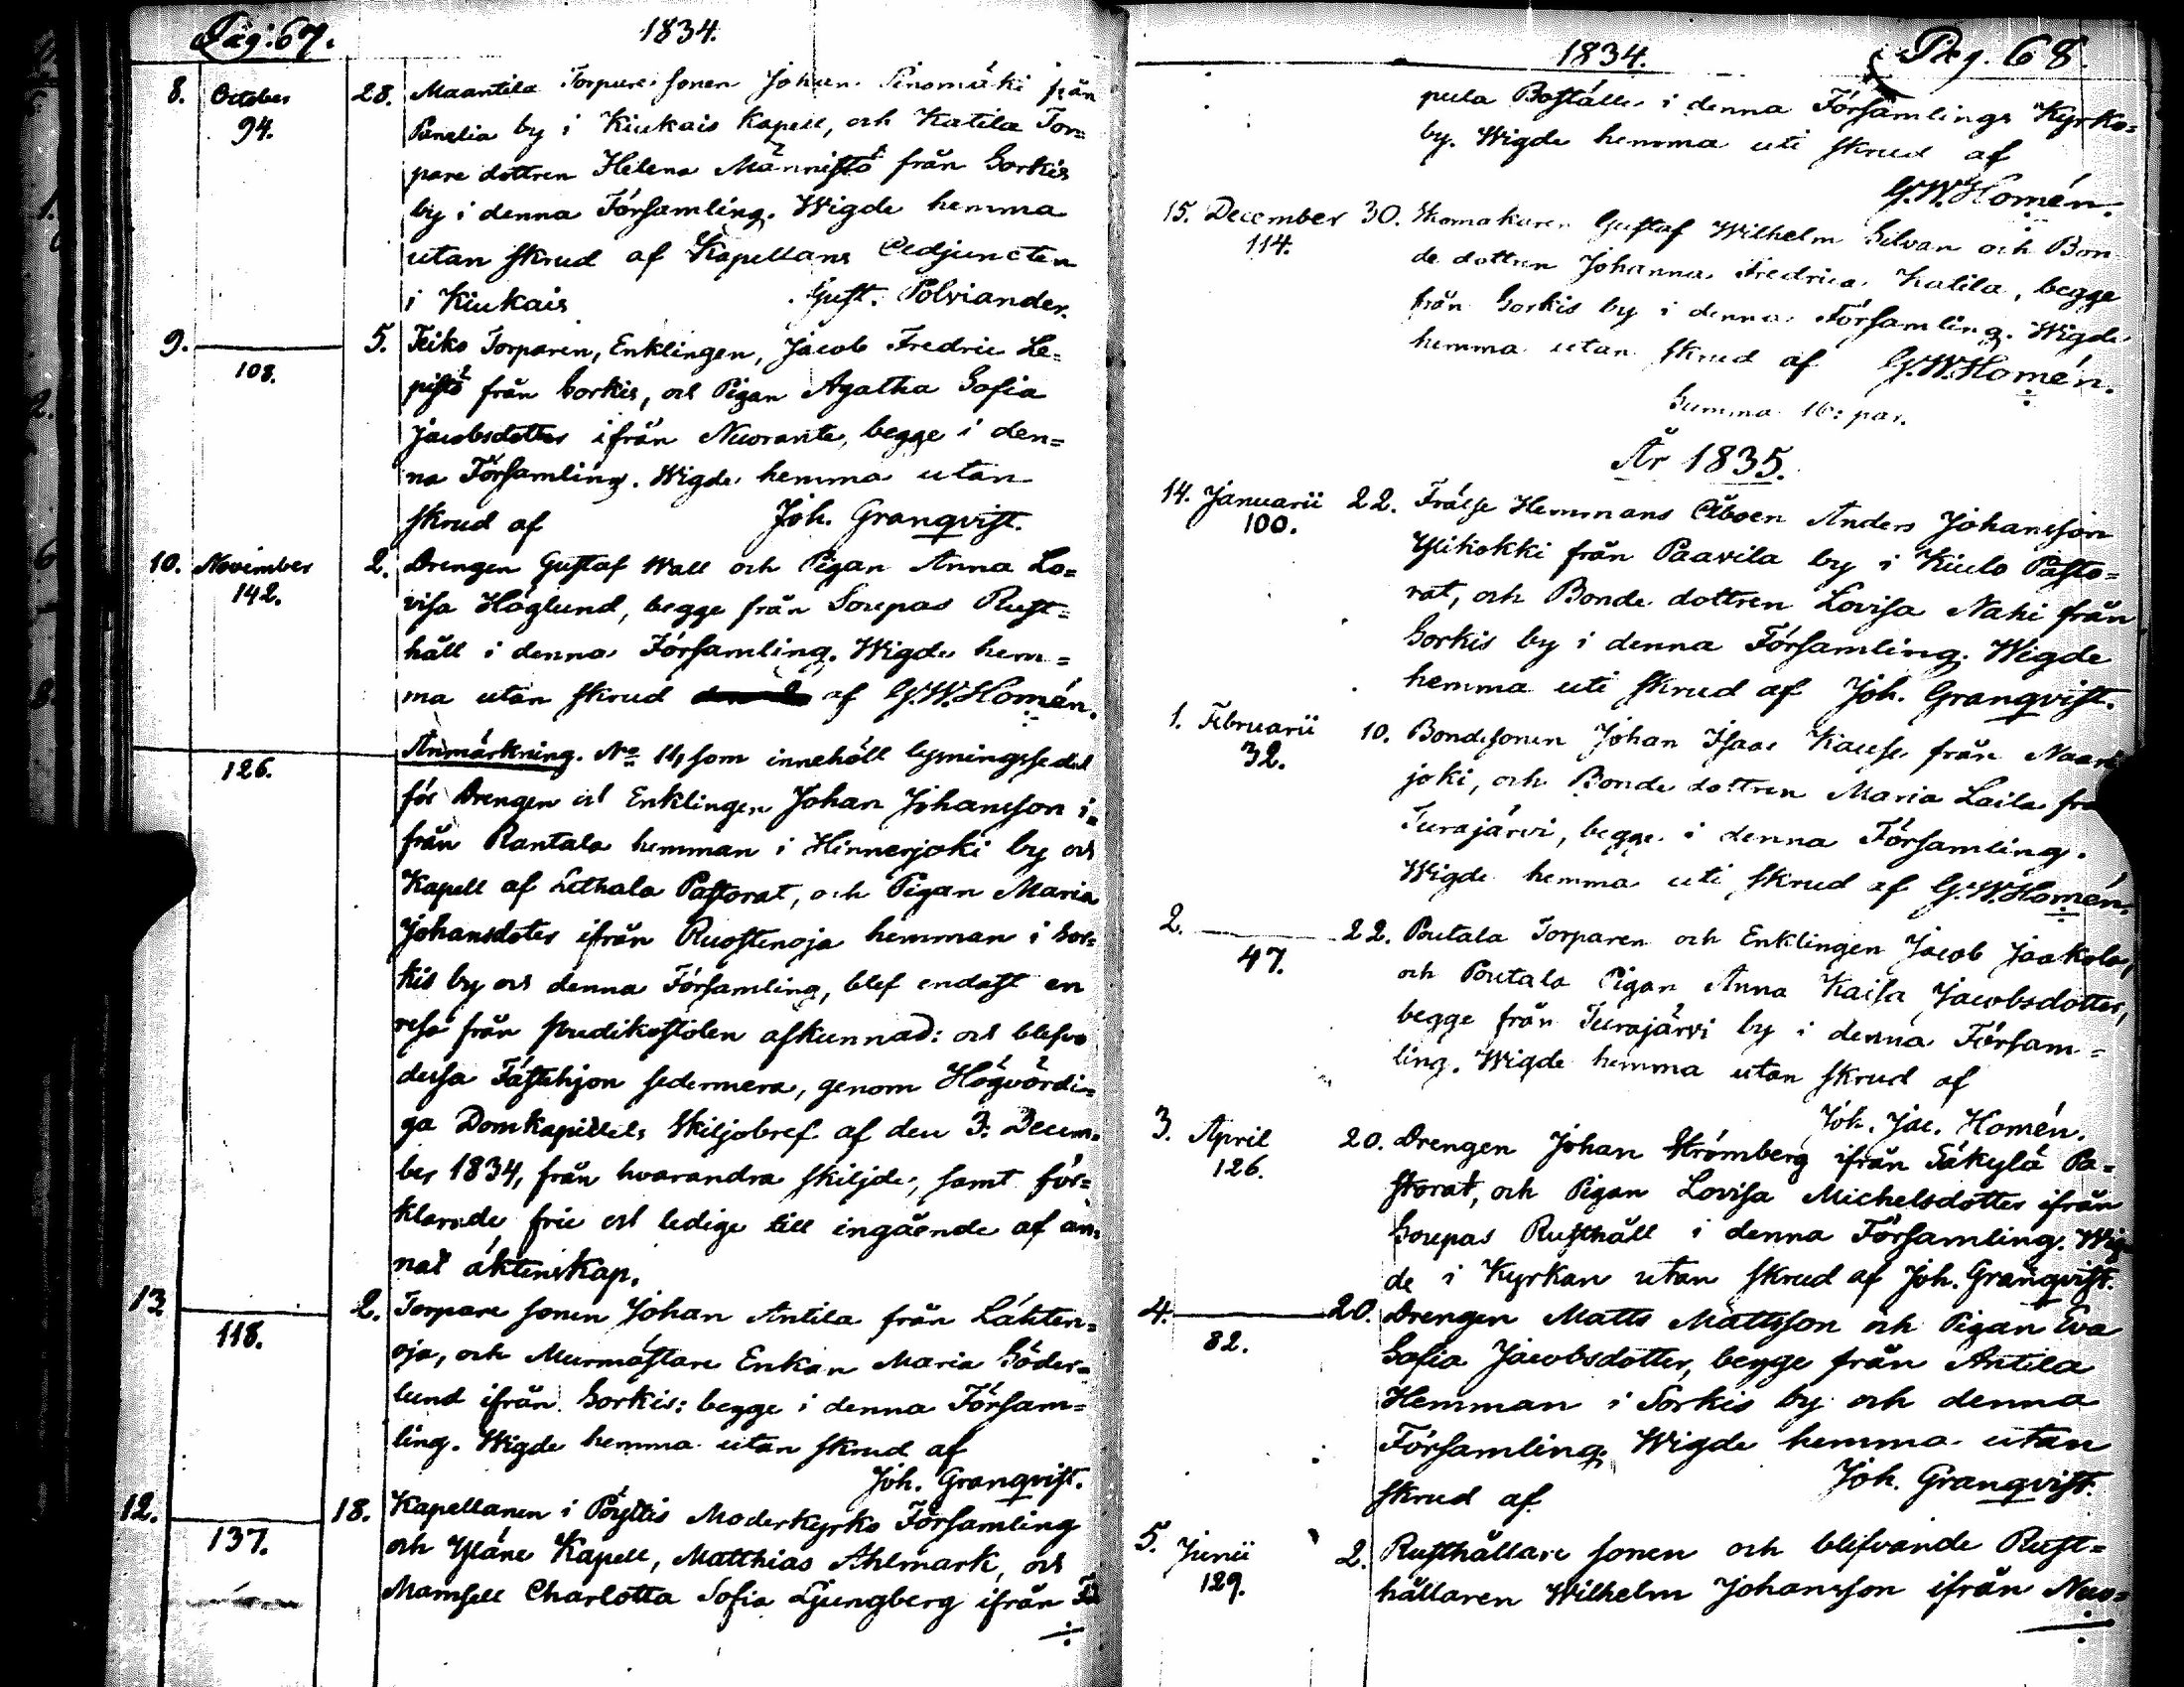 Pag: 67.
1834.
8. October 28. Maantila Torpare sonen Johan Sinomäki från
94. Panelia by i Kiukais Kapell, och Katila Tor=
pare dottren Helena Männistö från Sorkis
by i denna Församling. Wigde hemma
utan skrud af Kapellans Adjuncten
i Kiukais Gust. Polviander.
9. 5. Keiko Torparen, Enklingen, Jacob Fredric Le=
108. pistö från Sorkis, och Pigan Agatha Sofia
Jacobsdotter ifrån Nuoranta, begge i den=
na Församling. Wigde hemma utan
skrud af Joh. Granqvist.
10. November 2. Drengen Gustaf Wall och Pigan Anna Lo=
142. visa Höglund, begge från Soupas Rust=
håll i denna Församling. Wigde hem=
ma utan skrud af G.W.Homén.
Anmärkning. No 11, som innehöll lysningssedel
126.
för Drengen och Enklingen Johan Johansson i=
från Rantala hemman i Hinnerjoki by och
Kapell af Lethala Pastorat, och Pigan Maria
Johansdoter ifrån Ruostenoja hemman i Sor=
kis by och denna Församling, blef endast en
resa från predikostolen afkunnad: och blefvo
dessa Fästehjon sedermera, genom Högvördi=
ga Domkapitlets Skiljobref af den 3: Decem=
ber 1834, från hvarandra skiljde, samt för=
klarade frie och ledige till ingående af an=
nat äktenskap.
13. 2. Torpare sonen Johan Antila från Lähten=
118. oja, och Murmästare Enkan Maria Söder=
lund ifrån Sorkis: begge i denna Försam=
ling. Wigde hemma utan skrud af
Joh. Granqvist.
12. 18. Kapellanen i Pöyttis Moderkyrko Församling
137. och Yläne Kapell, Matthias Ahlmark, och
Mamsell Charlotta Sofia Ljungberg ifrån
1834. Pag. 68.
pula Boställe i denna Församlings Kyrko=
by. Wigde hemma uti skrud af
G.W.Homén.
15. December 30. Skomakaren Gustaf Wilhelm Silvan och Bon
114. de dottren Johanna Fredrica Katila, begge
från Sorkis by i denna Församling. Wigde
hemma utan skrud af G.W.Homén.
Summa 16: par.
År 1835.
14. Januarii 22. Frälse Hemmans Åboen Anders Johansson
100. Ylikokki från Paavila by i Kiulo Pasto=
rat, och Bonde dottren Lovisa Nahi från
Sorkis by i denna Församling. Wigde
hemma uti skrud af Joh. Granqvist.
1. Februarii 10. Bondesonen Johan Isaac Kause från
32. joki, och Bonde dottren Maria Laila
Turajärvi, begge i denna Församling.
Wigde hemma uti skrud af G.W.Homén.
2. 22. Poutala Torparen och Enklingen Jacob Jaakola,
47. och Poutala Pigan Anna Kaisa Jacobsdotter,
begge från Turajärvi by i denna Försam=
ling. Wigde hemma utan skrud af
Joh. Jac. Homén.
3. April 20. Drengen Johan Strömberg ifrån Säkylä Pa=
126. storat, och Pigan Lovisa Michelsdotter ifrån
Soupas Rusthåll i denna Församling. Wig=
de i Kyrkan utan skrud af Joh. Granqvist.
4. 20. Drengen Matts Mattsson och Pigan Eva
82. Sofia Jacobsdotter, begge från Antila
Hemman i Sorkis by och denna
Församling. Wigde hemma utan
skrud af Joh. Granqvist.
5. Junii 2. Rusthållare sonen och blifvande Rust=
129. hållaren Wilhelm Johansson ifrån Nuo=